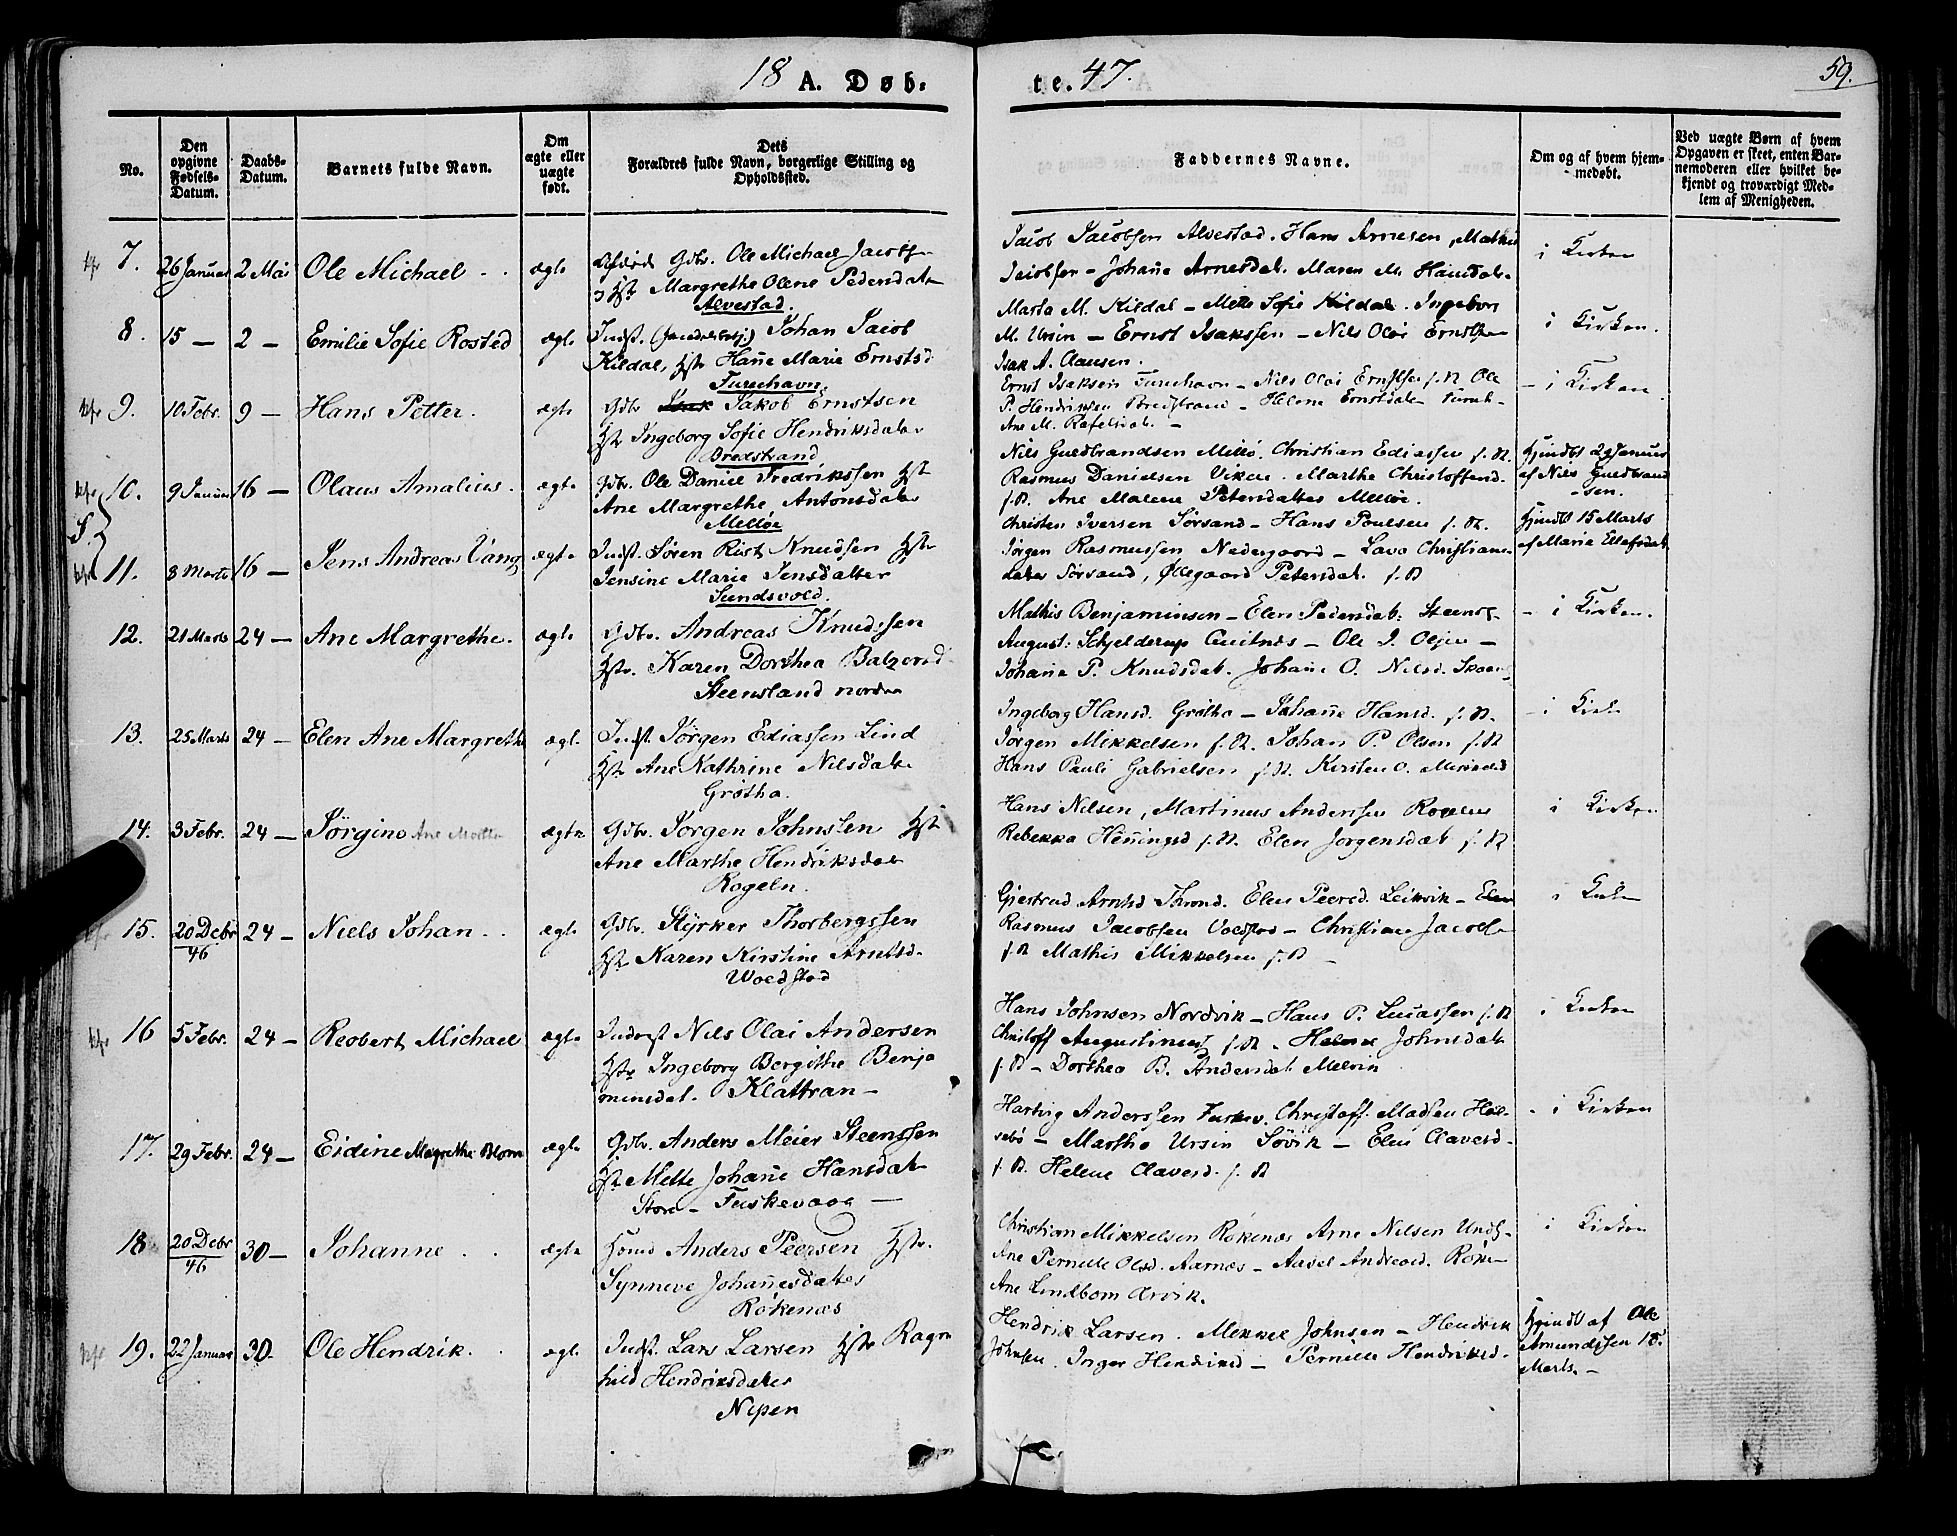 18 A. Døb-
te. 47.
59.
No.
Den opgivne Fødsels-Datum.
Daabs-Datum.
Barnets fulde Navn.
Om ægte eller uægte født.
Dets Forældres fulde Navn, borgerlige Stilling og Opholdssted.
Faddernes Navne.
Om og af hvem hjem-medøbt.
Ved uægte Børn af hvem Opgaven er skeet, enten Bar-nemoderen eller hvilket be-kjendt og troværdigt Med-lem af Menigheden.
7. 26 Januar 2 Mai Ole Michael ægte
Gbr. Ole Michael Jacobs
Hstr Margrethe Olene Pedersdat
Alvestad.
Jacob Jacobsen Alvestad. Hans Arnesen, Mathis
Jacobsen - Johañe Arnesdat. Maren M.
i Kirken
8. 15 — 2 — Emilie Sofie Rosted ægte
Indst. Johan Jacob
Kildal, Hstr Hañe Marie Ernstsd
Turnehavn.
Marta M. Kildal - Mette Sofie Kildal. Ingeborg
M. Ursin - Ernst Isakssen - Nils Olai Ernstsen
Isak A. Clausen.
i Kirken.
9. 10 Febr. 9 — Hans Petter. ægte
Gdbr Jakob Ernstsen
Hstr Ingeborg Sofie Hendriksdater
Bredstrand
Ernst Isaksen Turnehavn - Nils Olai Ernstsen f. st. Ole
P. Hendriksen Bredstrand - Helene Ernstdatr
Ane M. Rafelsdat. -
- i Kirken
10. 9 Januar 16 — Olaus Amalius. ægte
Gdbr. Ole Daniel Fredrikssen Hstr
Ane Margrethe Antonsdater
Melløe
Nils Guldbrandsen Melløe. Christian Ediassen f. st.
Rasmus Danielsen Viken. Marthe Christoffersd.
f. st. Ane Malene Petersdatter Melløe.
Hjemdbt 29 Januar
af Nils Guldbrand
-sen.
11. 8 Marts 16 — Jens Andreas Vang ægte
Indst. Søren Rist Knudsen Hstr
Jensine Marie Jensdatter
Sundsvold.
Christen Iversen Sørsand - Hans Poulsen f. st.
Jørgen Rasmussen Nedergaard - Lava Christians
dater Sørsand, Ollegaard Petersdat. f. st
Hjemdbt 15 Marts
af Maria Ellefsdat.
12. 21 Marts 24 — Ane Margrethe. ægte
Gdbr. Andreas Knudssen
Hstr. Karen Dorthea Balzersd
Steensland nordre
Mathis Benjaminsen - Elen Pedersdat: Steensl
August: Schjelderup - Ole J. Olsen -
Johañe P. Knudsdat. Johañe O. Nilsd.
- i Kirken.
13. 25 Marts 24 — Elen Ane Margreth ægt.
Indst. Jørgen Ediassen Lind
Hstr Ane Kathrine Nilsdat
Grøtho.
Ingeborg Hansd. Grøtho - Johañe Hansd. f. st.
Jørgen Mikkelsen f. st. Johan P. Olsen f. st
Hans Pauli Gabrielsen f. st. Kirsten O.
- i Kirk
14. 3 Febr. 24 — Jørgine Ane Martha ægte
Gdbr. Jørgen Johnsen Hstr
Ane Marthe Hendriksdat
Rogeln.
Hans Nilsen, Martinus Anderssen Rogeln
Rebekka Heñingsd f. st. Elen Jørgensdat f. st
i Kirken
15. 20 Debr 46 24 — Niels Johan. ægt.
Gdbr. Styrker Thorbergssen
Hstr Karen Kirstine Arntsd.
Woldstad
Gjertrud Arntsd Elen Peersd. Leikvik -
Rasmus Jacobsen Voldstad - Christian Jacobs
f. st Mathis Mikkelsen f. st -
i Kirken
16 5 Febr. 24 — Reobert Michael ægte
Indrst Nils Olai Andersen
Hstr Ingeborg Bergithe Benja
minsdat. Klattran -
Hans Johnsen Nordvik - Hans P. Lucassen f. st
Christoff Augustinus f. st. Helene Johnsdat
f. st - Dorthea B. Andersdat Melvin
i Kirken
17. 29 Febr. 24 — Eidine Magrethe Blom ægte
Gdbr. Anders Meier Steenssen
Hstr Mette Johañe Hansdat
Store- Fuskevaag -
Hartvig Anderssen Fuskev. Christoff: Madsen
- Martha Ursin Søvik - Elen Claversd.
f. st. Helene Claversd. f. st
- i Kirken
18 20 Debr 46 30 — Johanne ægte
Anders Peersen Hstr.
Synneve Johañesdater
Røkenæs
Christian Mikkelsen Røkenæs Arne Nilsen
Ane Pernille Olsd. Aarnæs - Aasel Andreasd. Røken
Ane Lindbom Ervik.
i Kirken
19. 22 Januar 30. Ole Hendrik. ægt.
Indst. Lars Larsen Hstr Ragn
hild Hendriksdater
Nipen
Hendrik Larsen. Mikkel Johnsen - Hendrik
Johnsen. Inger Hendriksd - Pernille Hendriksd.
Hjemdbt af Ole
Amundssen 15
Marts. -